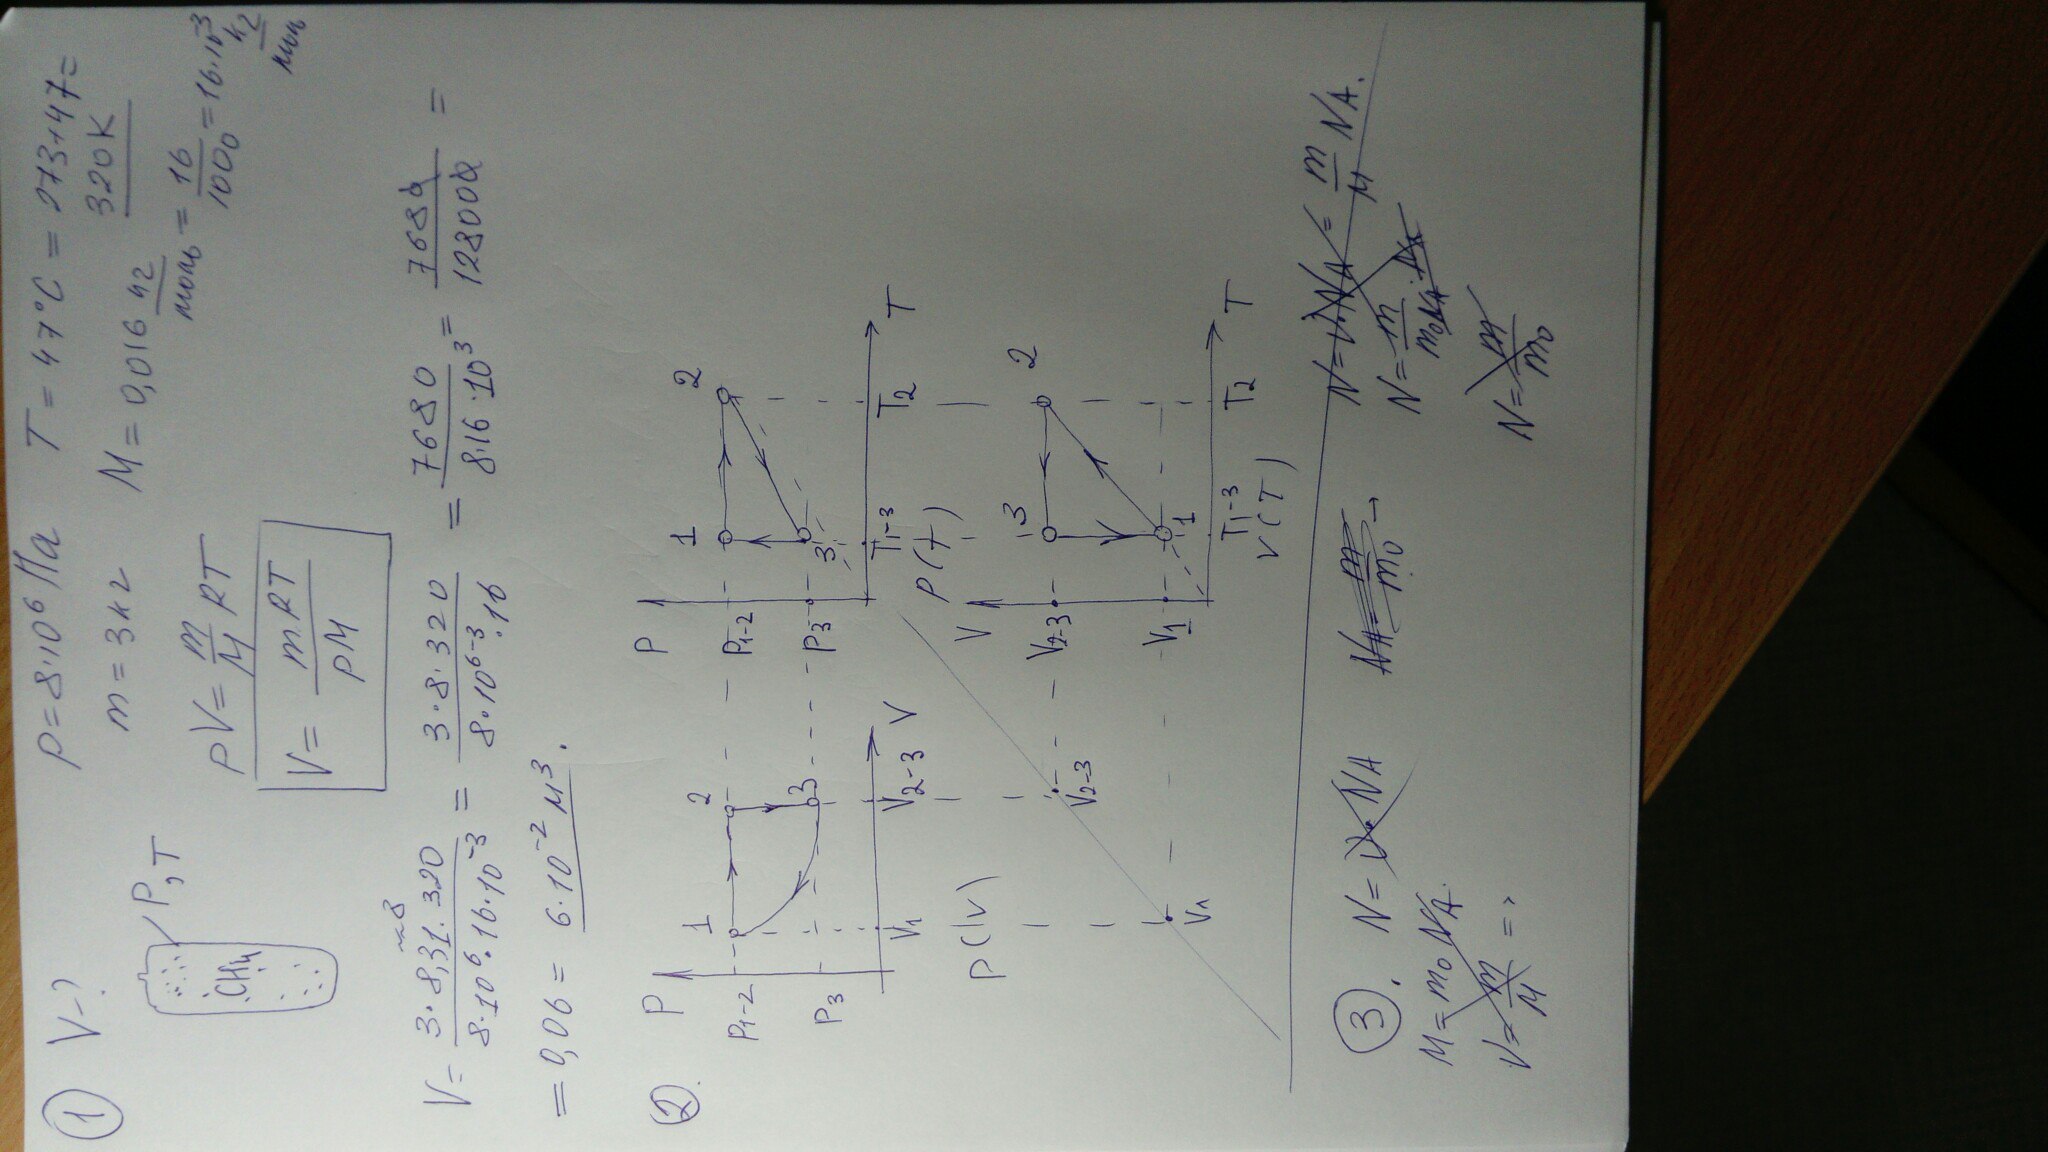 ① V-? p = 8·10⁶ Па T = 47°C = 273+47 = 320 K
m = 3 кг M = 0,016 кг/моль = 16/1000 = 16·10⁻³ кг/моль
P, T
CH₄
pV = m/M RT
V = mRT/pM
V = 3·8,31·320 / 8·10⁶·16·10⁻³ = 3·8·320 / 8·10⁶⁻³·16 = 7680 / 8·16·10³ = 7680 / 128000 =
≈8
= 0,06 = 6·10⁻² м³.
②.
P 1 2 P₁₋₂ P₃ 3 V₁ V₂₋₃ V
p(v)
P 1 2 P₁₋₂ P₃ 3 T₁₋₃ T₂ T
p(t)
V 3 2 V₂₋₃ V₁ 1 T₁₋₃ T₂ T
V(T)
V₂₋₃
V₁
③. N = ν·N_A N_A = m/m₀ → N = ν·N_A = m/M N_A.
M = m₀ N_A. N = m/m₀N_A
ν = m/M => N = m/m₀